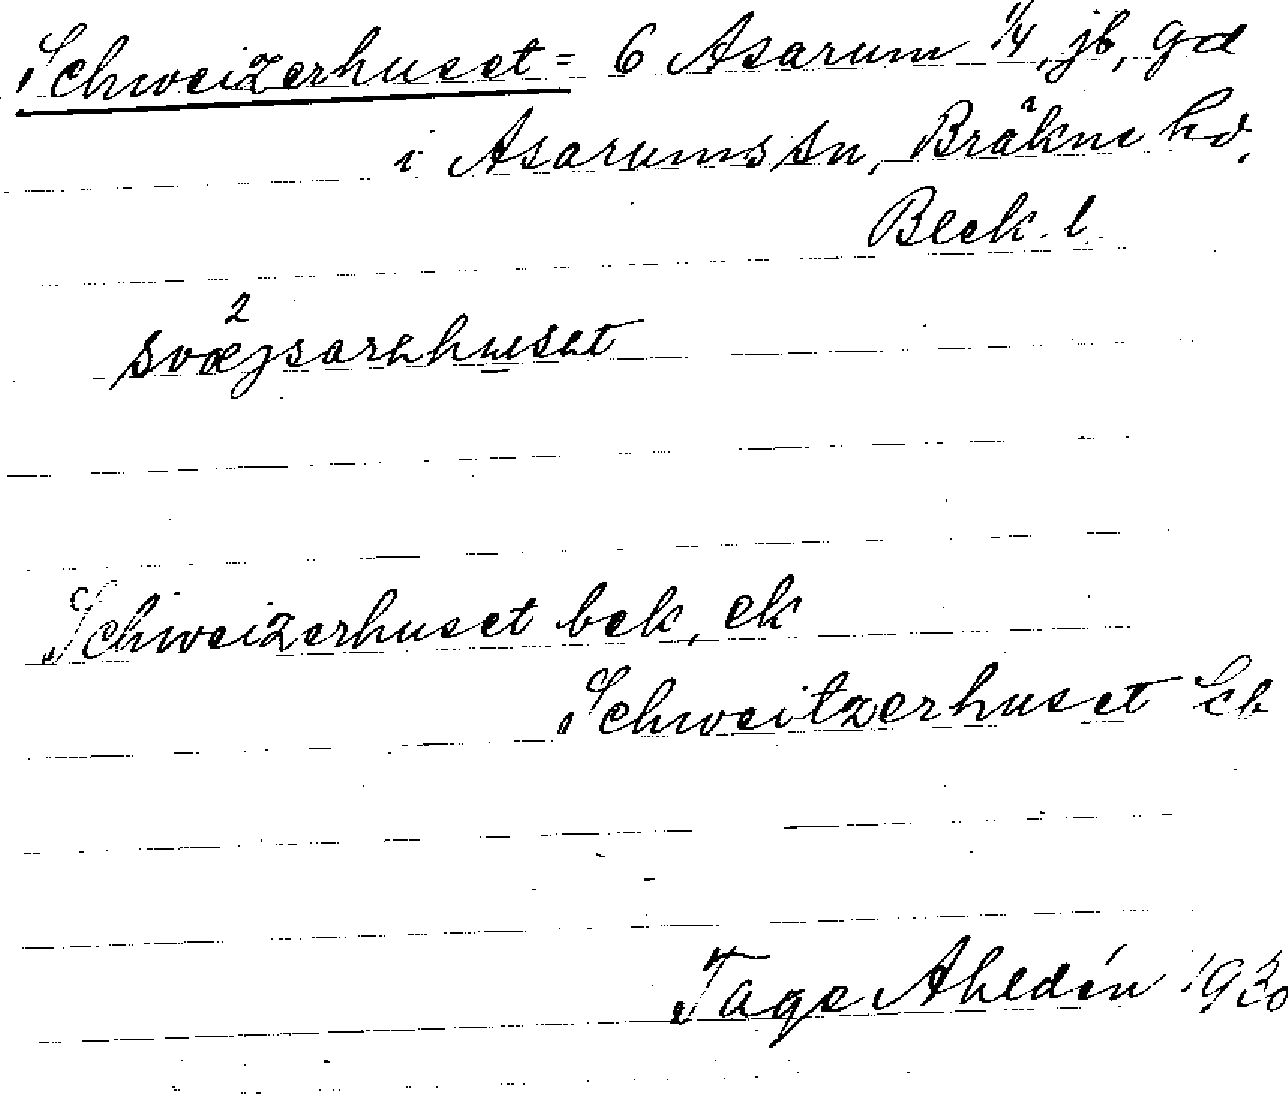 Schweizerhuset = 6 Asarum 1/4, jb, gd
i Asarums sn, Bräkne hd.
Bleck. l
svæjsarehuset
Schweizerhuset bek, ek
Schweitzerhuset
Tage Ahldén 1930